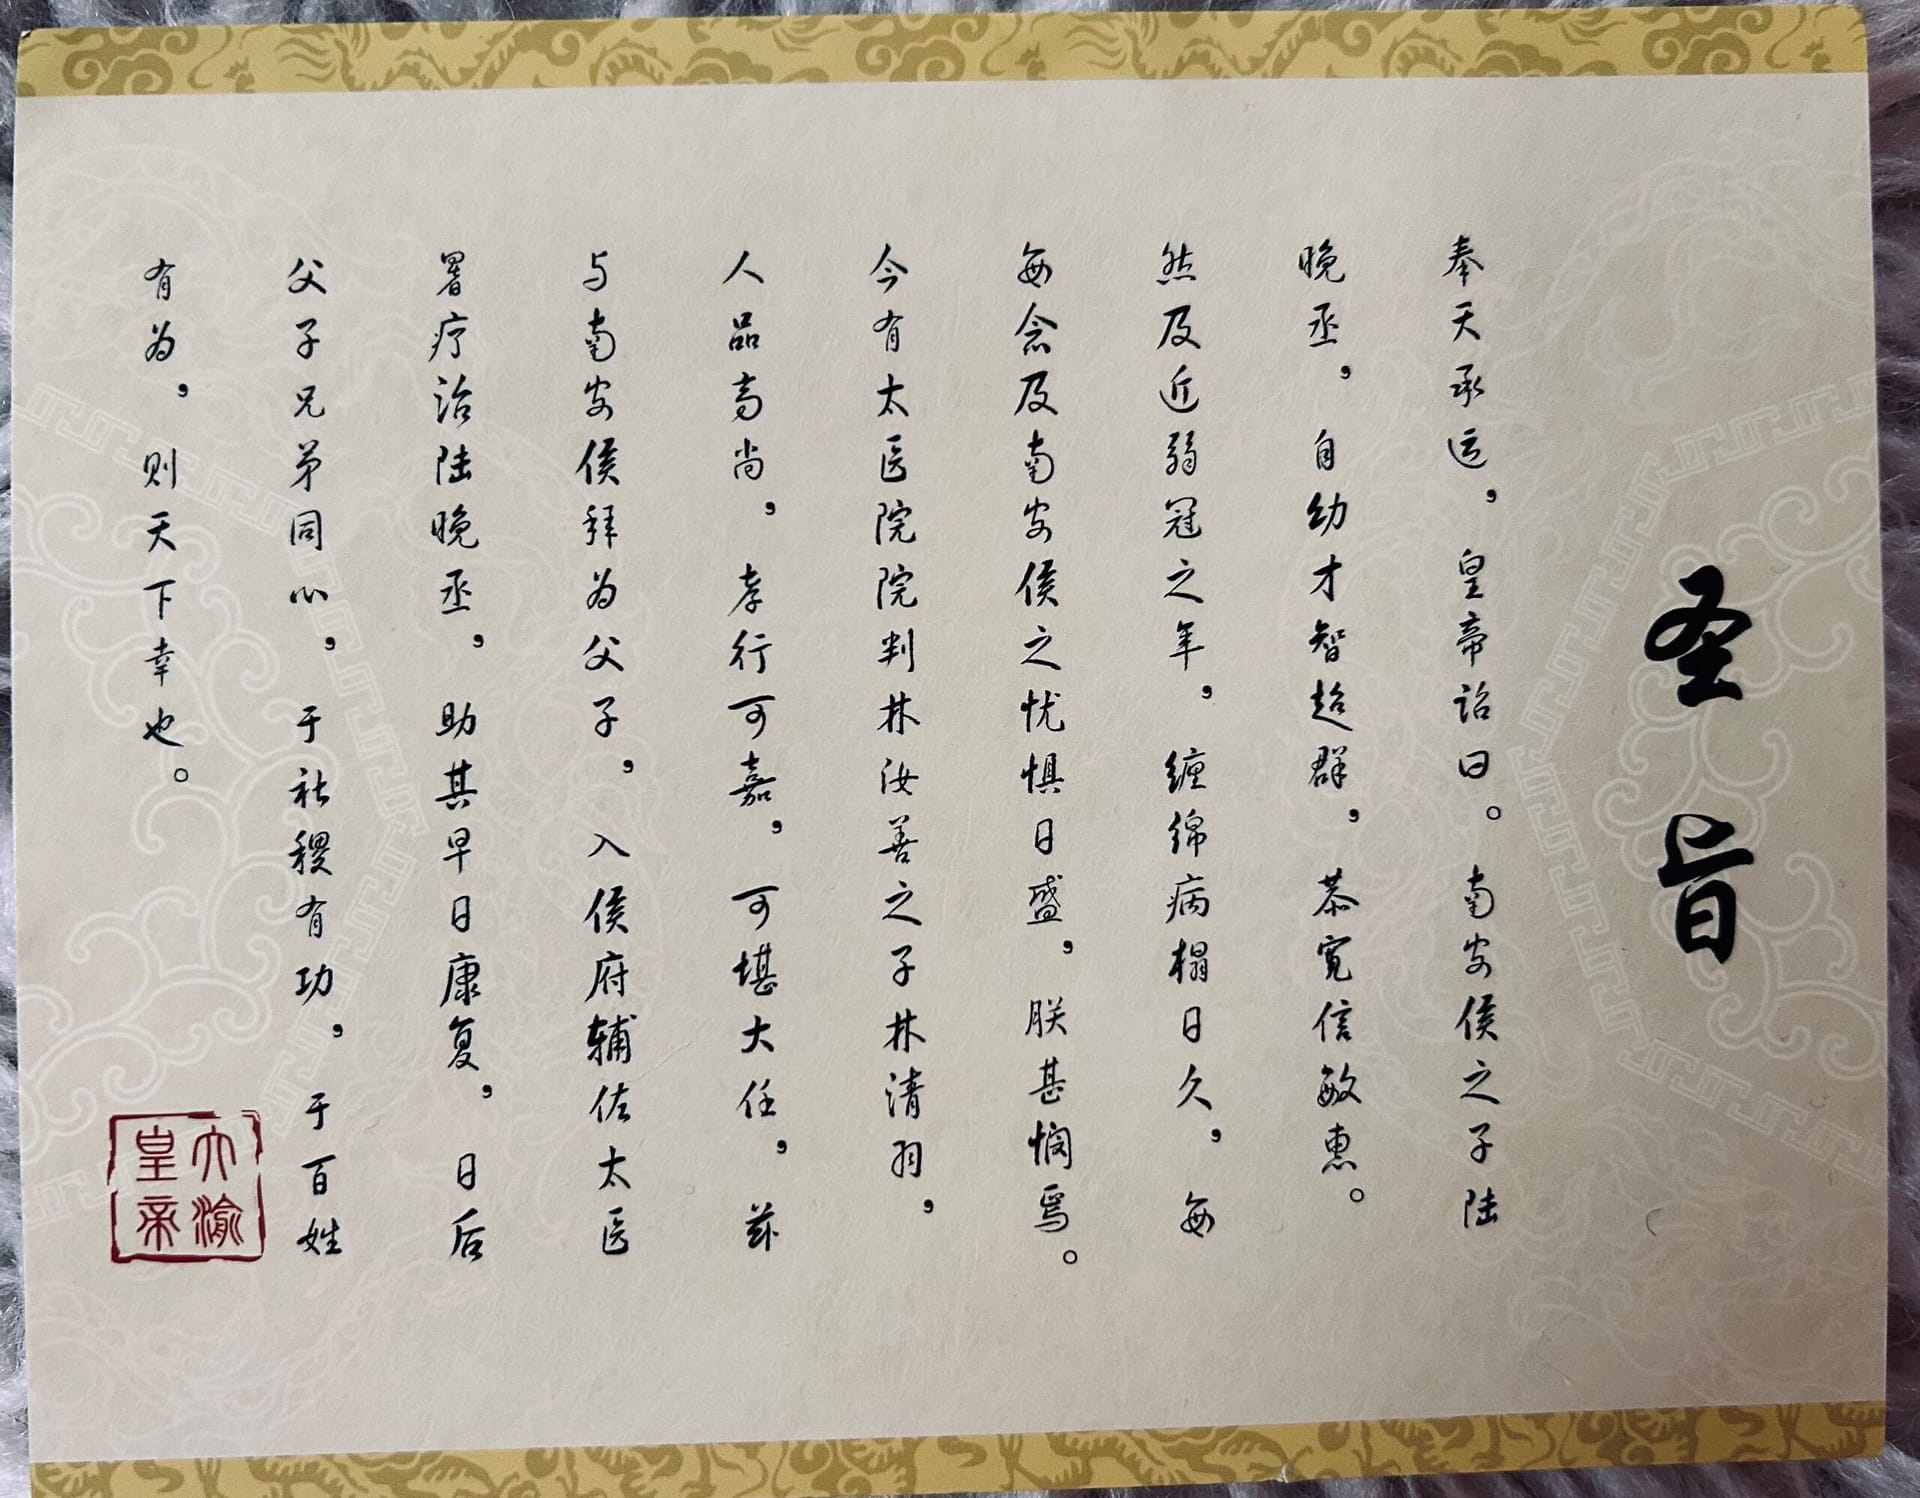 圣旨
奉天承运，皇帝诏曰。南安侯之子陆
晚丞，自幼才智超群，恭宽信敏惠。
然及近弱冠之年，缠绵病榻日久，每
每念及南安侯之忧惧日盛，朕甚悯焉。
今有太医院院判林汝善之子林清羽，
人品高尚，孝行可嘉，可堪大任，兹
与南安侯拜为父子，入侯府辅佐太医
署疗治陆晚丞，助其早日康复，日后
父子兄弟同心，于社稷有功，于百姓
有为，则天下幸也。
大渝
皇帝